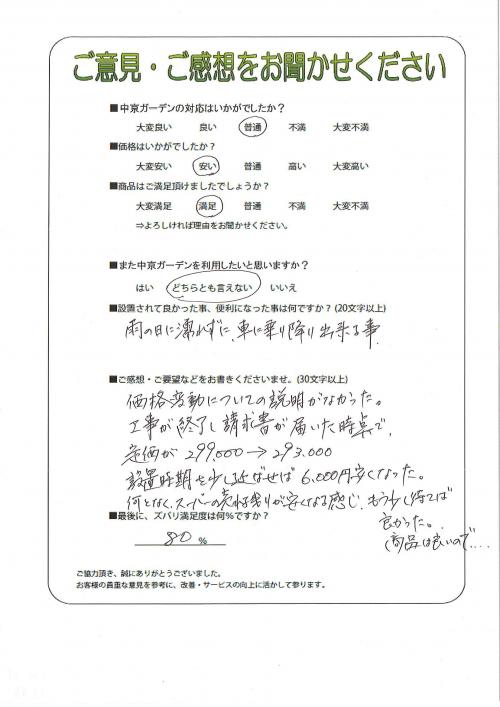 ご意見・ご感想をお聞かせください
■中京ガーデンの対応はいかがでしたか？
大変良い 良い 普通 不満 大変不満
■価格はいかがでしたか？
大変安い 安い 普通 高い 大変高い
■商品はご満足頂けましたでしょうか？
大変満足 満足 普通 不満 大変不満
⇒よろしければ理由をお聞かせください。
■また中京ガーデンを利用したいと思いますか？
はい どちらとも言えない いいえ
■設置されて良かった事、便利になった事は何ですか？(20文字以上)
雨の日に濡れずに、車に乗り降り出来る事
■ご感想・ご要望などをお書きくださいませ。(30文字以上)
価格変動についての説明がなかった。
工事が終了し請求書が届いた時点で、
定価が299,000→293,000
設置時期を少し延ばせば6,000円安くなった。
何となく、スーパーの売れ残りが安くなる感じ、もう少し待てば
良かった。
(商品は良いので....
■最後に、ズバリ満足度は何%ですか？
80 %
ご協力頂き、誠にありがとうございました。
お客様の貴重な意見を参考に、改善・サービスの向上に活かして参ります。